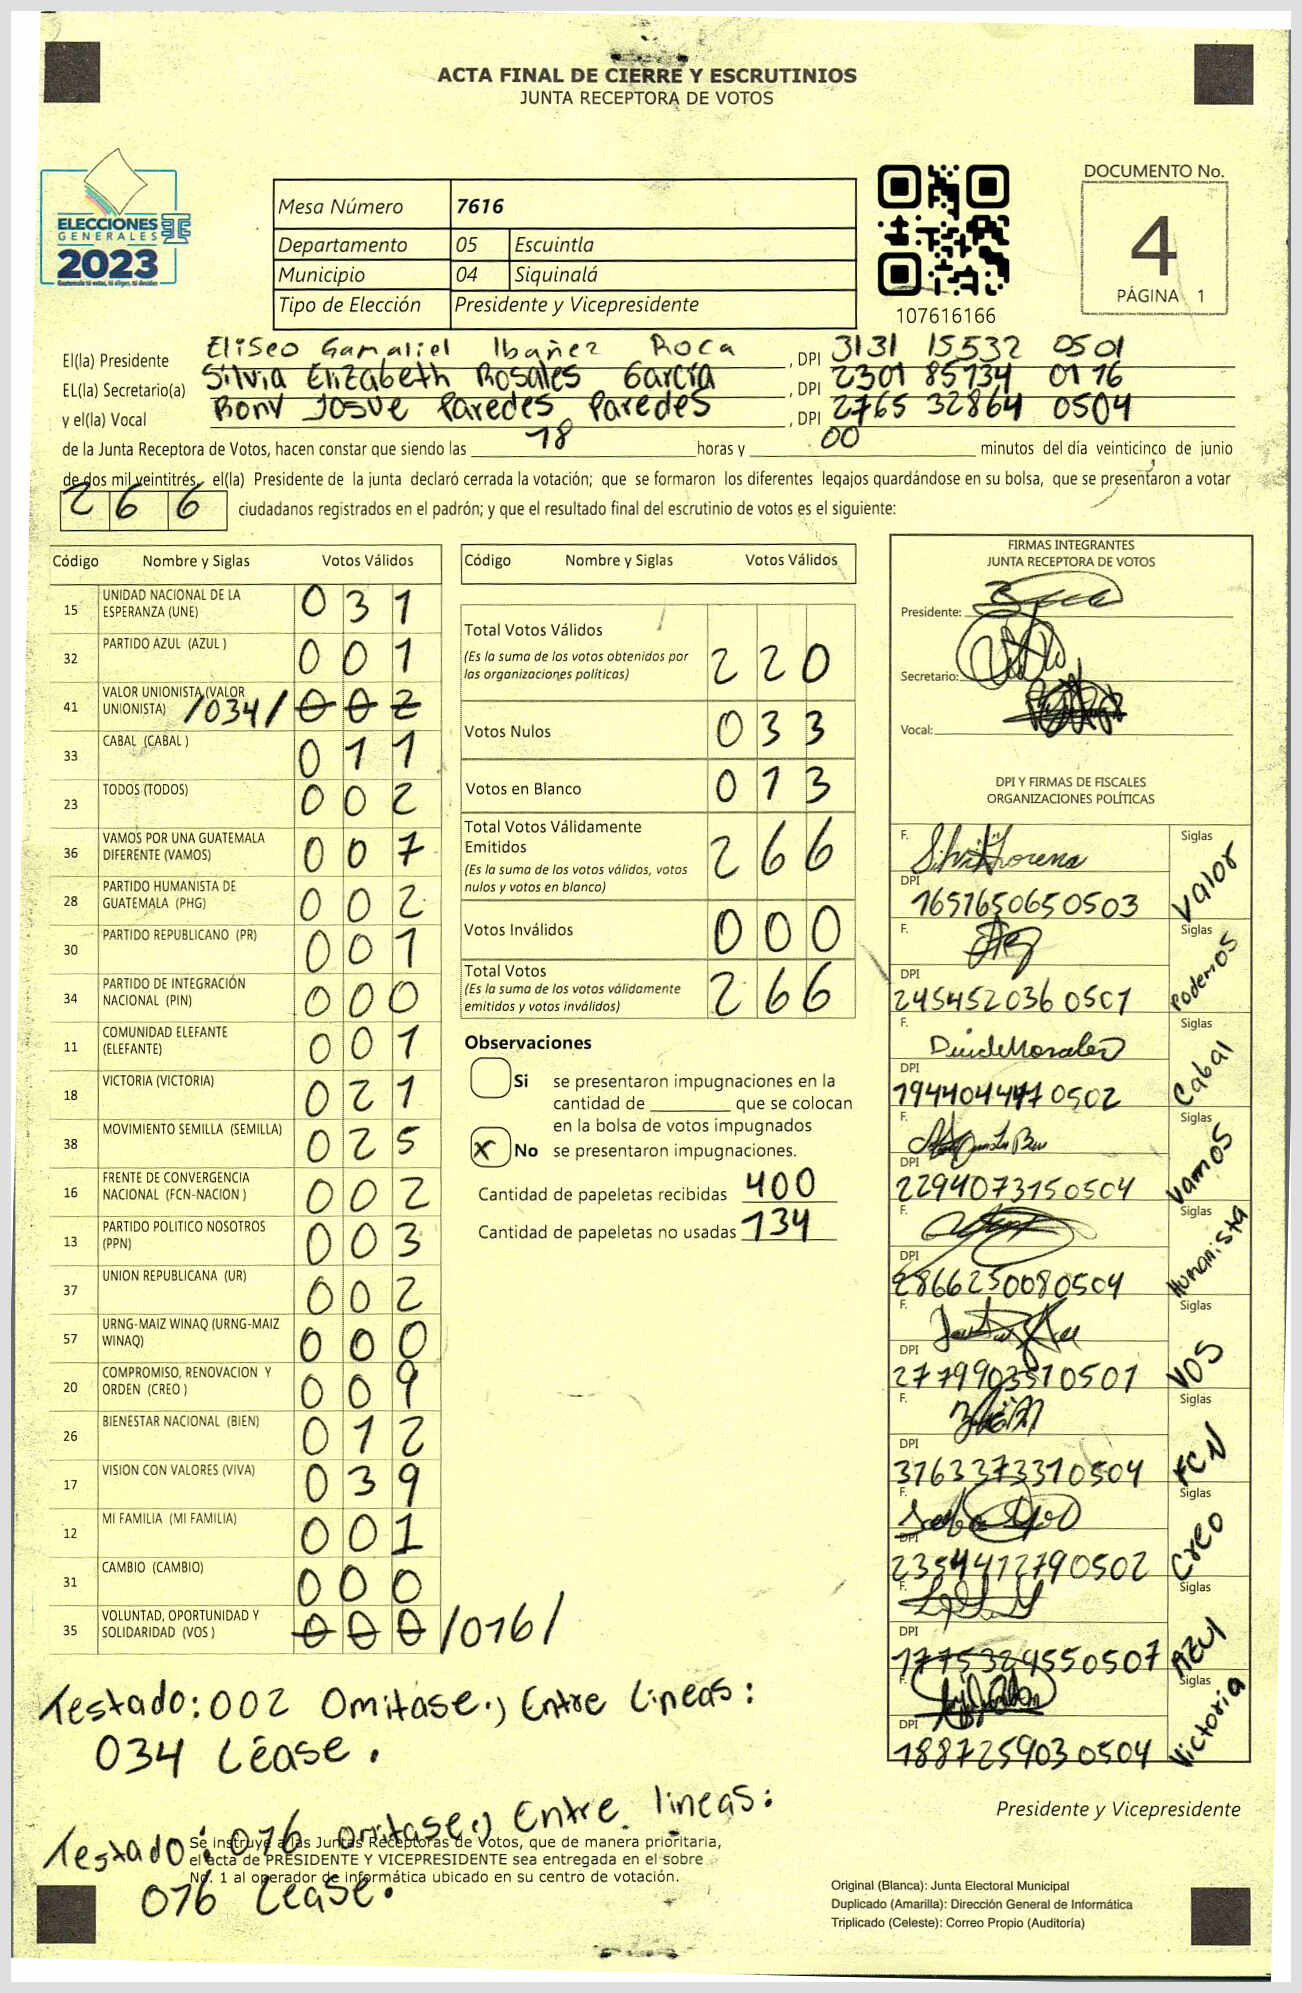 ACTA FINAL DE CIERRE Y ESCRUTINIOS
JUNTA RECEPTORA DE VOTOS
ELECCIONES
GENERALES
2023
Guatemala tú votas, tú eliges, tú decides
Mesa Número 7616
Departamento 05 Escuintla
Municipio 04 Siquinalá
Tipo de Elección Presidente y Vicepresidente
107616166
DOCUMENTO No.
4
PÁGINA 1
El(la) Presidente Eliseo Gamaliel Ibañez Roca , DPI 3131 15532 0501
EL(la) Secretario(a) Silvia Elizabeth Rosales García , DPI 2301 85734 0116
y el(la) Vocal Rony Josue Paredes Paredes , DPI 2765 32864 0504
de la Junta Receptora de Votos, hacen constar que siendo las 18 horas y 00 minutos del día veinticinco de junio
de dos mil veintitrés, el(la) Presidente de la junta declaró cerrada la votación; que se formaron los diferentes legajos quardándose en su bolsa, que se presentaron a votar
266 ciudadanos registrados en el padrón; y que el resultado final del escrutinio de votos es el siguiente:
Código Nombre y Siglas Votos Válidos
15 UNIDAD NACIONAL DE LA ESPERANZA (UNE) 031
32 PARTIDO AZUL (AZUL ) 001
41 VALOR UNIONISTA (VALOR UNIONISTA) /034/ 002
33 CABAL (CABAL ) 011
23 TODOS (TODOS) 002
36 VAMOS POR UNA GUATEMALA DIFERENTE (VAMOS) 007
28 PARTIDO HUMANISTA DE GUATEMALA (PHG) 002
30 PARTIDO REPUBLICANO (PR) 001
34 PARTIDO DE INTEGRACIÓN NACIONAL (PIN) 000
11 COMUNIDAD ELEFANTE (ELEFANTE) 001
18 VICTORIA (VICTORIA) 021
38 MOVIMIENTO SEMILLA (SEMILLA) 025
16 FRENTE DE CONVERGENCIA NACIONAL (FCN-NACION ) 002
13 PARTIDO POLITICO NOSOTROS (PPN) 003
37 UNION REPUBLICANA (UR) 002
57 URNG-MAIZ WINAQ (URNG-MAIZ WINAQ) 000
20 COMPROMISO, RENOVACION Y ORDEN (CREO ) 009
26 BIENESTAR NACIONAL (BIEN) 012
17 VISION CON VALORES (VIVA) 039
12 MI FAMILIA (MI FAMILIA) 001
31 CAMBIO (CAMBIO) 000
35 VOLUNTAD, OPORTUNIDAD Y SOLIDARIDAD (VOS ) 000 /016/
Código Nombre y Siglas Votos Válidos
Total Votos Válidos 220
(Es la suma de los votos obtenidos por
las organizaciones políticas)
Votos Nulos 033
Votos en Blanco 013
Total Votos Válidamente
Emitidos 266
(Es la suma de los votos válidos, votos
nulos y votos en blanco)
Votos Inválidos 000
Total Votos 266
(Es la suma de los votos válidamente
emitidos y votos inválidos)
Observaciones
Si se presentaron impugnaciones en la
cantidad de ________ que se colocan
en la bolsa de votos impugnados
X No se presentaron impugnaciones.
Cantidad de papeletas recibidas 400
Cantidad de papeletas no usadas 134
FIRMAS INTEGRANTES
JUNTA RECEPTORA DE VOTOS
Presidente:
Secretario:
Vocal:
DPI Y FIRMAS DE FISCALES
ORGANIZACIONES POLÍTICAS
F. Siglas Valor
DPI 1657650650503
F. Siglas Podemos
DPI 2454520360501
F. Siglas Cabal
DPI
F. Siglas Vamos
DPI 2294073150504
F. Siglas Humanista
DPI 2866250080504
F. Siglas VOS
DPI 2779903510501
F. Siglas FCN
DPI 3163373310504
F. Siglas Creo
DPI 2354412790502
F. Siglas AZUL
DPI 1775324550507
F. Siglas Victoria
DPI 1887259030504
Testado: 002 Omitase., Entre Lineas:
034 Léase.
Testado: 016 omitase., Entre lineas:
016 Lease.
Se instruye a las Juntas Receptoras de Votos, que de manera prioritaria,
el acta de PRESIDENTE Y VICEPRESIDENTE sea entregada en el sobre
No. 1 al operador de informática ubicado en su centro de votación.
Presidente y Vicepresidente
Original (Blanca): Junta Electoral Municipal
Duplicado (Amarilla): Dirección General de Informática
Triplicado (Celeste): Correo Propio (Auditoría)